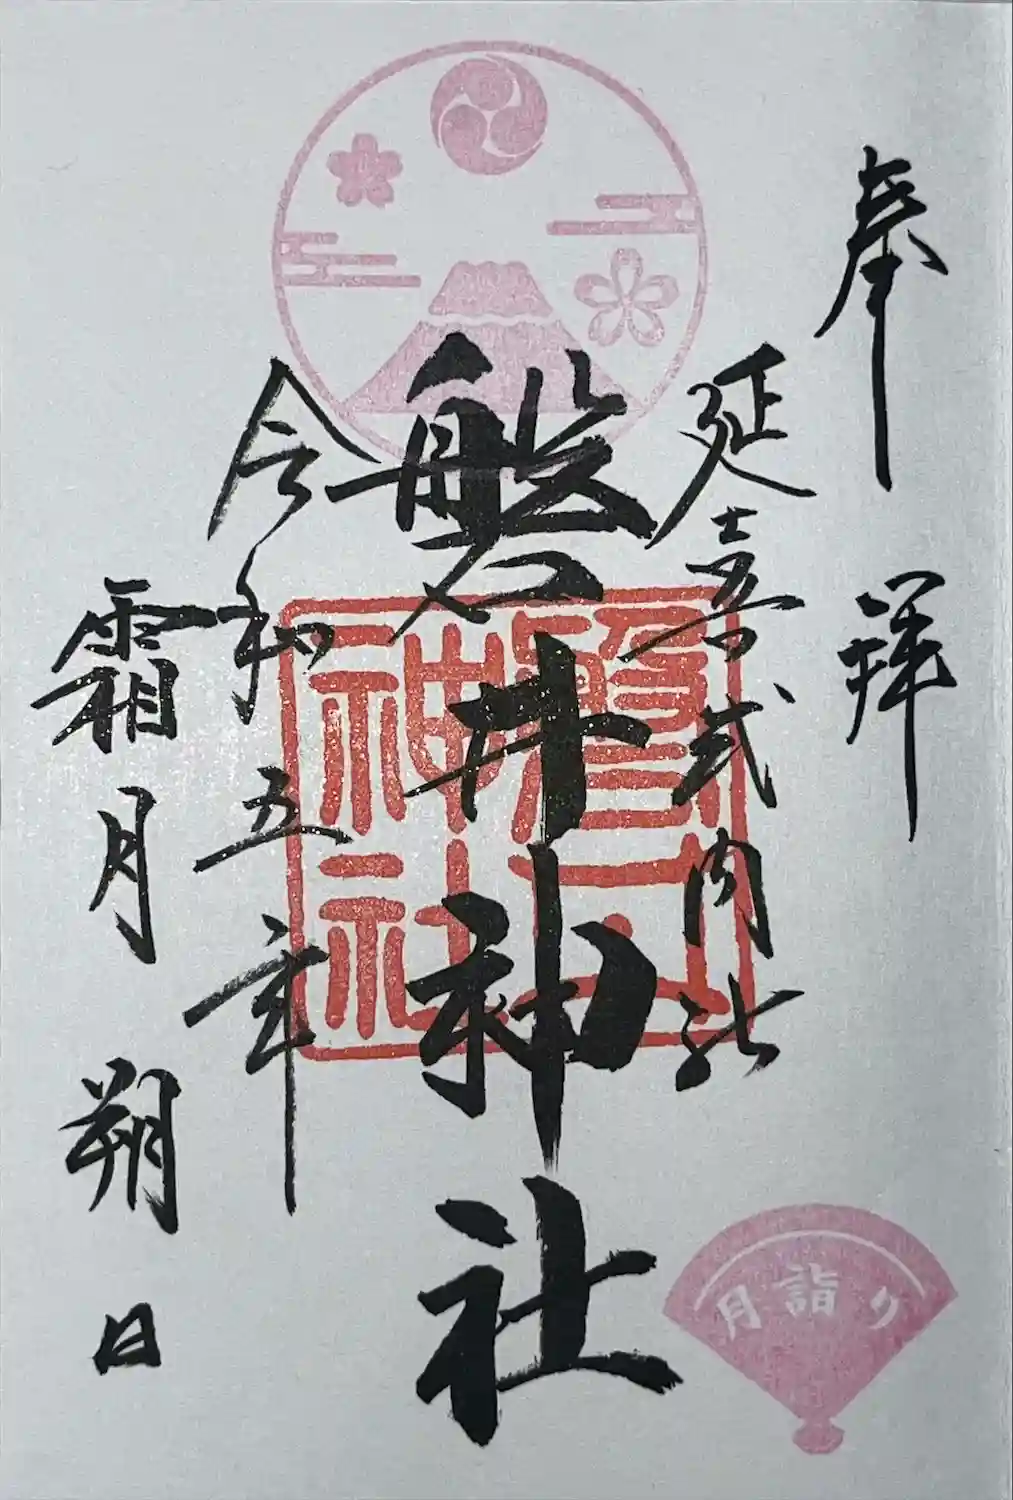 奉拝
延喜式内社
磐井神社
令和五年
霜月朔日
磐井
神社
月詣り